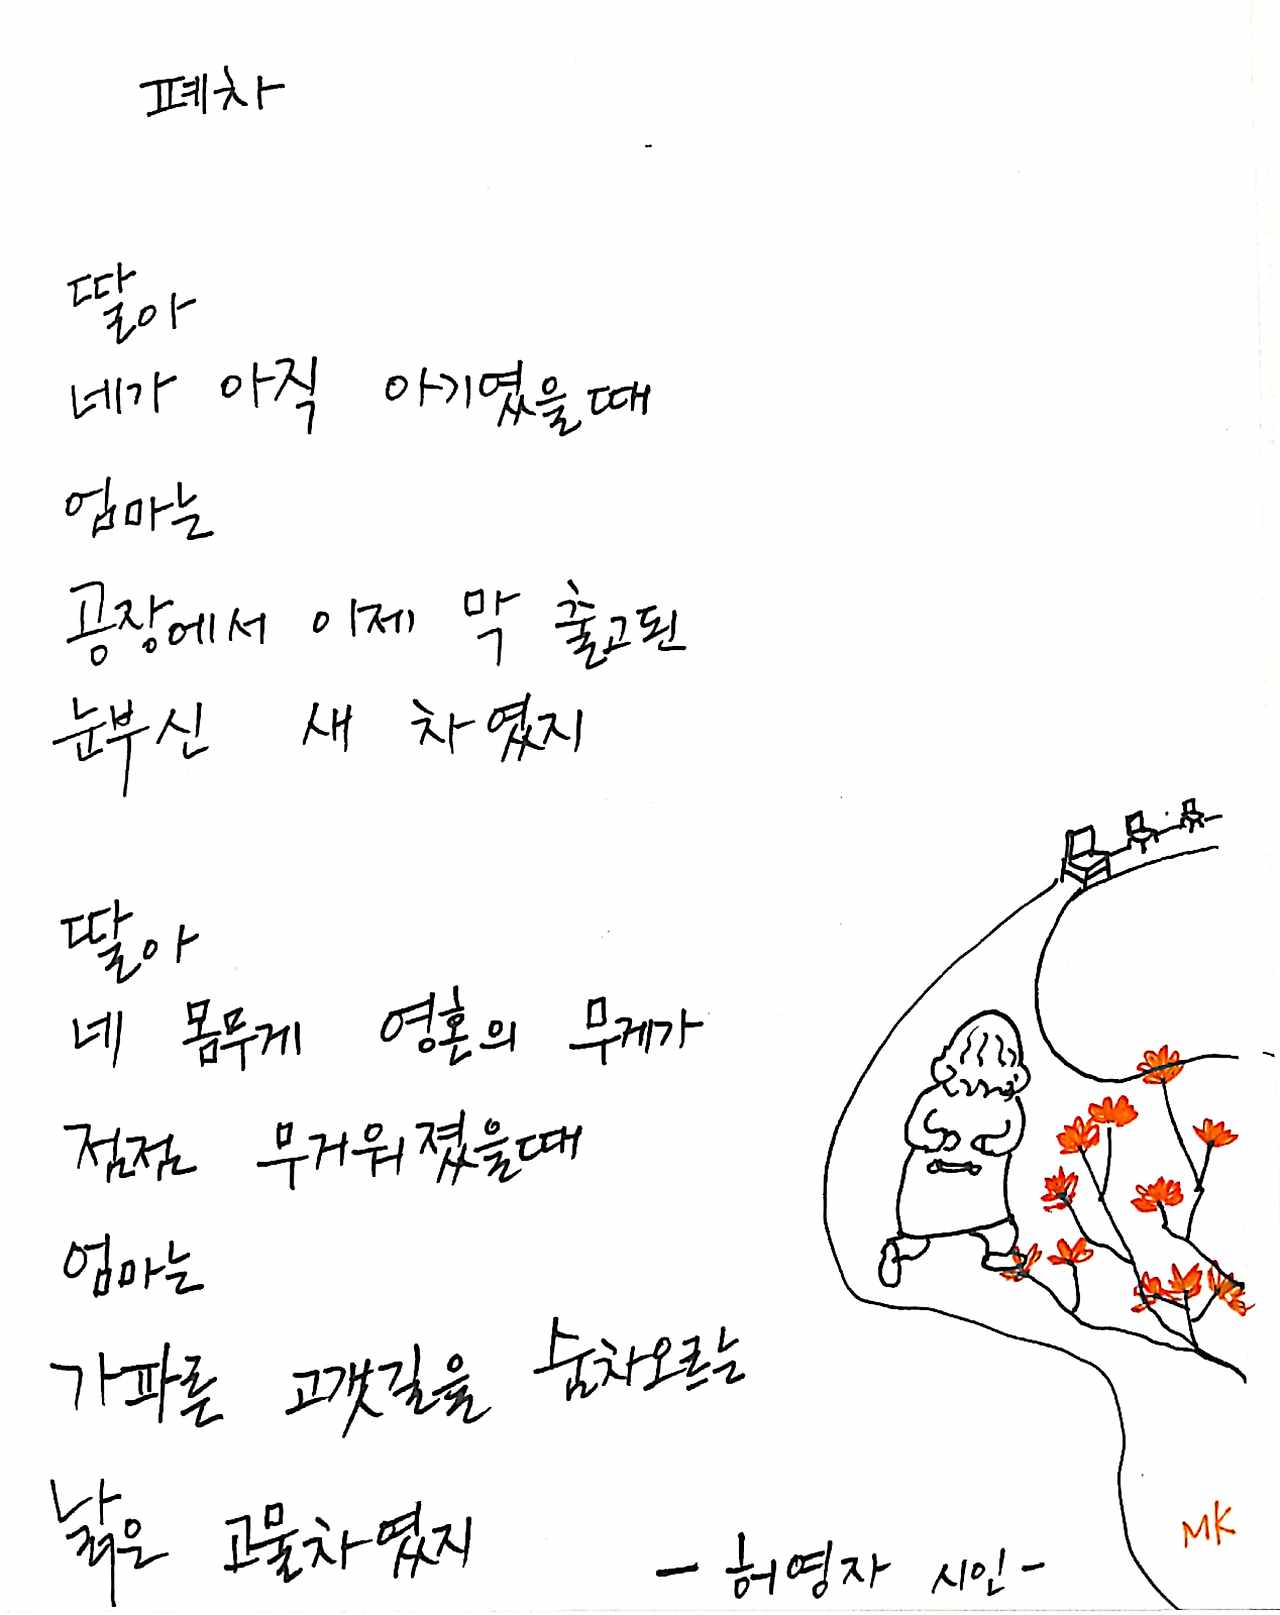 폐차
딸아
네가 아직 아기였을때
엄마는
공장에서 이제 막 출고된
눈부신 새 차였지
딸아
네 몸무게 영혼의 무게가
점점 무거워졌을때
엄마는
가파른 고갯길을 숨차오르는
낡은 고물차였지
- 허영자 시인 -
MK